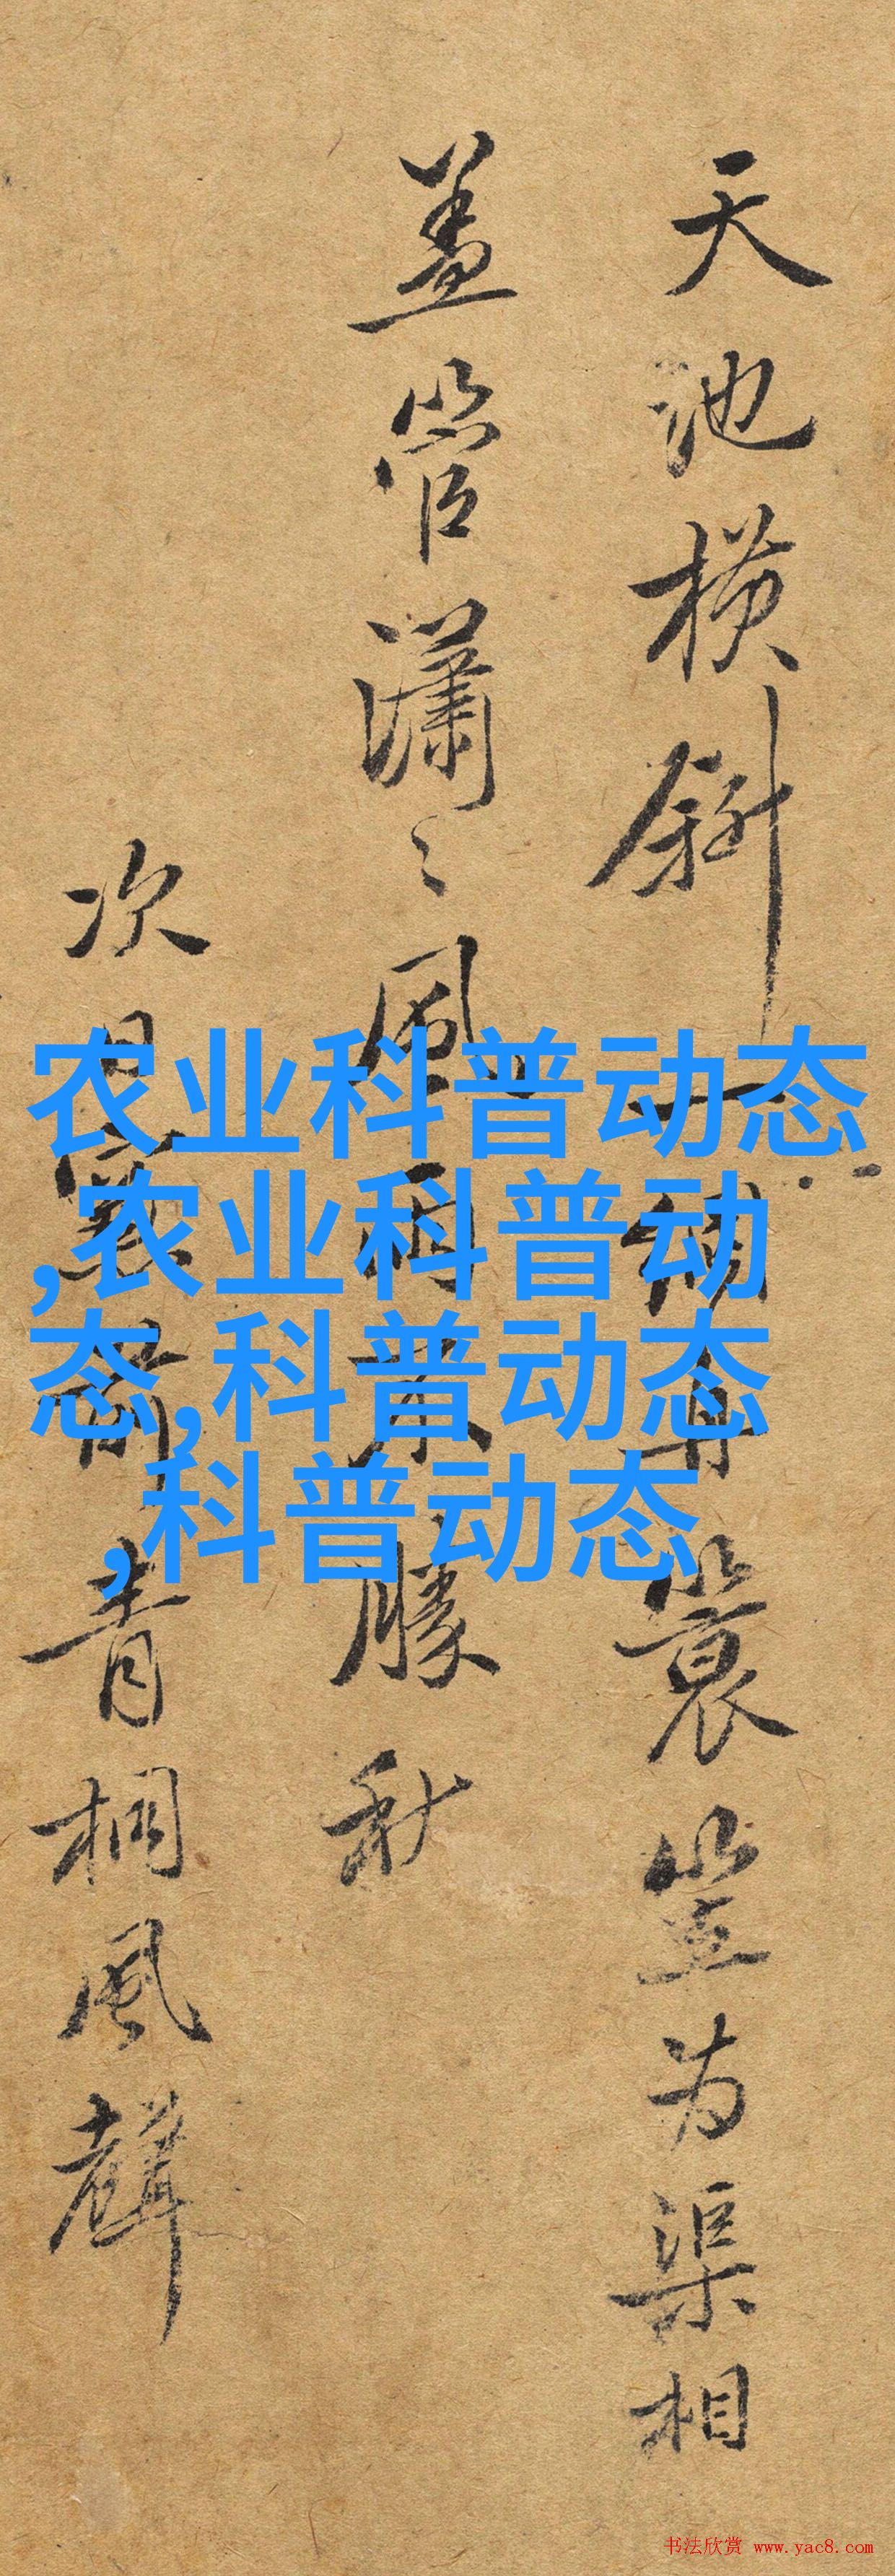 天池横斜一簑笠为渠相
盖管瀟〻風雨不勝秋
次日前青桐風聲
农业科普动态
,农业科普动
态,科普动态
,科普动态
书法欣赏 www.yac8.com